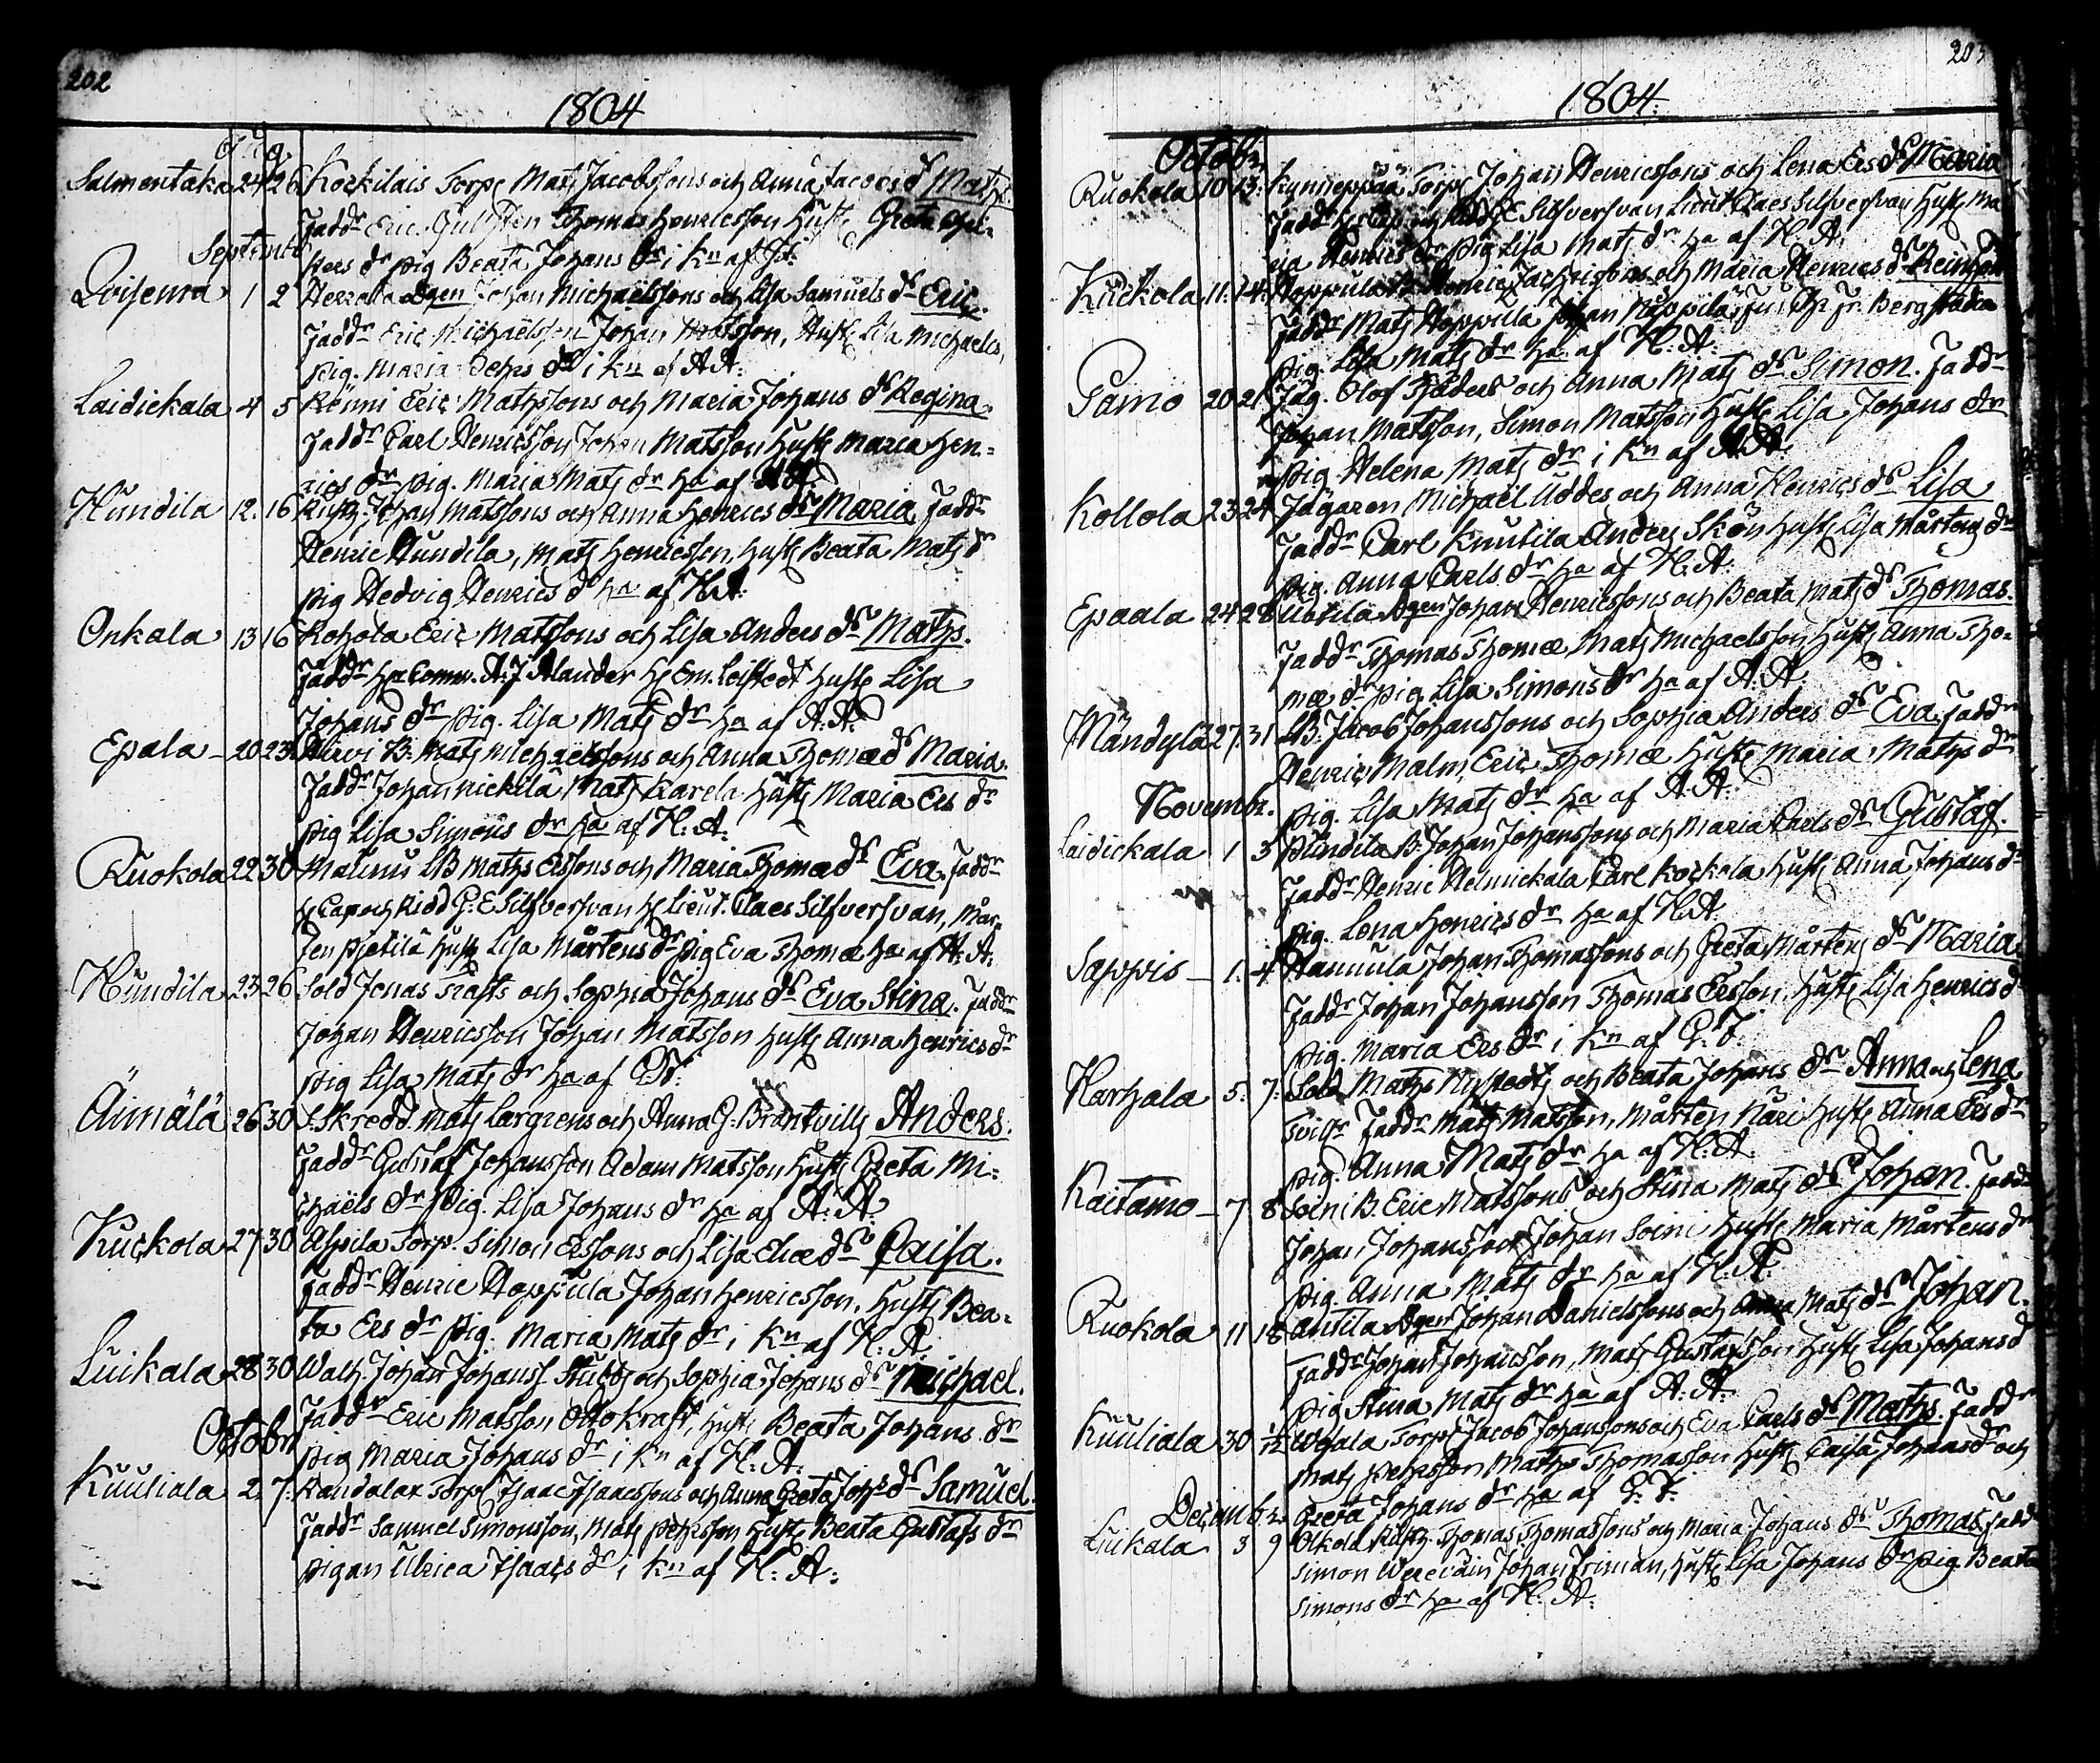 202
1804
Salmentaka 24 26 Kockilais Torp. Matş Jacobssons och Anna Jacobs dr Maths.
Faddr Eric Thomas Henricsson Hustr Greta
Septembr
pig Beata Johans dr i kn af
Loisema 1 2 Herrala Johan Michaëlssons och Lisa Samuels dr Eric.
Faddr Eric Michaëlsson Johan Matsson, Hustr Lisa Michaels
pig. Maria Pehrs dr i kn af A A:
Laidickala 4 5 Rönni Eric Mathssons och Maria Johans dr Regina.
Faddr Carl Henricsson Johan Matsson Hustr Maria Hen=
rics dr pig. Maria Mats dr ha af
Hundila 12. 16 Rusth. Johan Matssons och Anna Henrics dr Maria Faddr
Henric Hundila, Mats Henricsson, Hustr Beata Mats dr
pig Hedvig Henrics dr ha af H A:
Onkala 13 16 Rohola Eric Matssons och Lisa Anders dr Maths.
Faddr Hr Comm. A: J Alander Hr Em. Leistedt Hustr Lisa
Johans dr pig. Lisa Mats dr ha af A: A:
Epala 20 23 B. Mats Michaëlssons och Anna Thomæ dr Maria.
Faddr Johan Nickilä Mats Karela Hustr Maria Ers dr
pig Lisa Simons dr ha af H: A:
Ruokola 22 30 LB Maths Erssons och Maria Thomæ dr Eva. Faddr
Hr Cap och Ridd G: E Silfversvan Hr Lieut. Claes Silfversvan, Mår
ten Pjetilä Hustr Lisa Mårtens dr pig Eva Thomæ ha af H: A:
Hundila 23 26 Sold Jonas Krafts och Sophia Johans dr Eva Stina. Faddr
Johan Henricsson Johan Matsson Hustr Anna Henrics dr
pig Lisa Mats dr ha af
Äimälä 26 30 S. Skredd. Mats Largrens och Anna G: Brantvills Anders.
Faddr Gustaf Johansson Adam Matsson Hustr Greta Mi=
chaëls dr pig. Lisa Johans dr ha af A: A:
Kuckola 27 30 Alpila Torp. Simon Erssons och Lisa Eliæ dr Caisa.
Faddr Henric Hoppula Johan Henricsson, Hustr Bea=
ta Ers dr pig. Maria Mats dr i kn af H: A:
Luikala 28 30 Johan Johanss. Stubbs och Sophia Johans dr Michael.
Faddr Eric Matsson Otto Kraft, Hustr Beata Johans dr
Octobr
pig Maria Johans dr i kn af H: A:
Kuuliala 2. 7. Kandalax Torp Isaac Isaacssons och Anna Greta Johs dr Samuel.
Faddr Samuel Simonsson, Mats Pehrsson Hustr Beata Gustafs dr
pigan Ulrica Isaacs dr i kn af H: A:
203
1804.
Octobr.
Ruokola 10 13. Torp Johan Henricssons och Lena Ers dr Maria
Faddr Silfversvan Lieut Claes Silfversvan Hustr Ma
ria Henrics dr pig Lisa Mats dr ha af H. A.
Kuckola 11. 14. Hoppula B Henric Zachrissons och Maria Henrics dr Reinhold
Faddr Mats Hoppula Johan Nuppila, Jfr. Bergstadia
pig. Lisa Mats dr ha af H. A.
Pamo 20 21 Jäg. Olof och Anna Mats dr Simon. Faddr
Johan Matsson, Simon Matsson Hustr Lisa Johans dr
pig Helena Mats dr i kn af A. A.
Kollola 23 24 Jägaren Michaël Uddes och Anna Henrics dr Lisa
Faddr Carl Knutila Anders Skön Hustr Lisa Mårtens dr
pig. Anna Carls dr ha af H. A.
Epaala 24 28 Uotila Johan Henricssons och Beata Mats dr Thomas.
Faddr Thomas Thomæ, Mats Michaelsson, Hustr Anna Tho=
mæ dr pig. Lisa Simons dr ha af A. A.
Mändylä 27. 31 LB. Jacob Johanssons och Sophia Anders dr Eva. Faddr
Henric Malm, Eric Thomæ Hustr Maria Maths dr
Novembr.
pig. Lisa Mats dr ha af A. A.
Laidickala 1 3 Pundila B. Johan Johanssons och Maria Carls dr Gustaf.
Faddr Henric Helmickala Carl Kockola Hustr Anna Johans dr
pig. Lena Henrics dr ha af H. A.
Sappis 1. 4 Hannula Johan Thomassons och Greta Mårtens dr Maria.
Faddr Johan Johansson Thomas Ersson, Hustr Lisa Henrics d
pig. Maria Ers dr i kn af G. F.
Harhala 5. 7. Sold. Maths Nystedts och Beata Johans dr Anna och Lena
Faddr Mats Matsson, Mårten Kari Hustr Anna Ers dr
pig. Anna Mats dr ha af H. A.
Kaitamo 7 8 Soini B. Eric Matssons och Stina Mats dr Johan. Faddr
Johan Johansson Johan Soini Hustr Maria Mårtens dr
pig. Anna Mats dr ha af H. A.
Ruokola 11 18 Antila Johan Danielssons och Anna Mats dr Johan.
Faddr Johan Johansson, Mats Gustafsson Hustr Lisa Johans d
pig Stina Mats dr ha af A. A.
Kuuliala 30 Torp Jacob Johanssons och Eva Carls dr Maths. Faddr
Mats Pehrsson Maths Thomasson Hustr Caisa Johans dr och
Decembr. Greta Johans dr ha af G. F.
Luikala 3 9 Olkola Rusth Thomas Thomassons och Maria Johans dr Thomas Fadd
Simon Johan Friman, Hustr Lisa Johans dr pig. Beata
Simons dr ha af H. A.